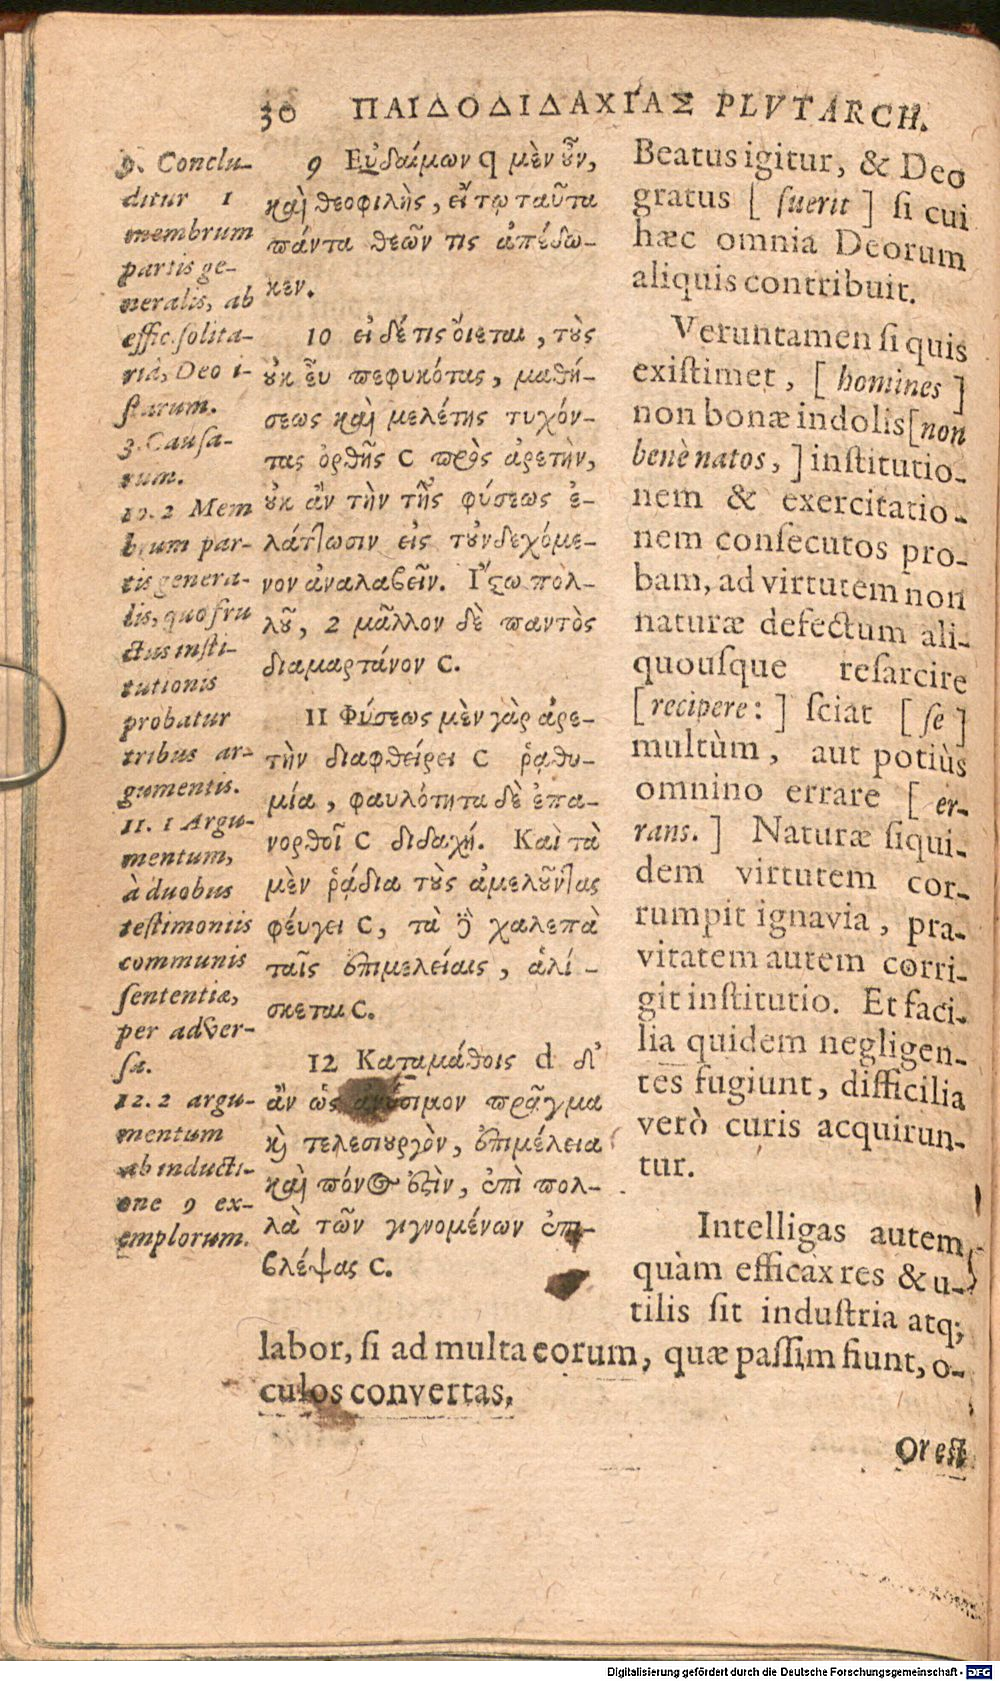 30 ΠΑΙΔΟΔΙΔΑΧΙ´ΑΣ PLVTARCH.
9. Conclu-
ditur 1
membrum
partis ge-
neralis, ab
effic. solita-
riâ, Deo i-
starum.
3. Causa-
rum.
10. 2 Mem
brum par-
tis genera-
lis, quo fru
ctus insti-
tutionis
probatur
tribus ar-
gumentis.
11. 1 Argu-
mentum,
à duobus
testimoniis
communis
sententiæ,
per adver-
sa.
12. 2 argu-
mentum
ab inducti-
one 9 ex-
emplorum.
9 Εὐδαίμων q μὲν οὖν,
καὶ θεοφιλὴς, εἴ τῳ ταῦτα
πάντα θεῶν τις ἀπέδω-
κεν.
10 εἰ δέ τις ὄιεται, τοὺς
οὐκ εὖ πεφυκότας, μαθή-
σεως καὶ μελέτης τυχόν-
τας ὀρθῆς C πρὸς ἀρετὴν,
οὐκ ἂν τὴν τῆς φύσεως ἐ-
λάττωσιν εἰς τοὐνδεχόμε-
νον ἀναλαβεῖν. Ἴστω πολ-
λοῦ, 2 μᾶλλον δὲ παντὸς
διαμαρτάνον C.
11 Φύσεως μὲν γὰρ ἀρε-
τὴν διαφθείρει C ῥᾳθυ-
μία, φαυλότητα δὲ ἐπα-
νορθοῖ C διδαχή. Καὶ τὰ
μὲν ῥᾴδια τοὺς ἀμελοῦντας
φέυγει C, τὰ δὲ χαλεπὰ
ταῖς ἐπιμελείαις, ἁλί-
σκεται C.
12 Καταμάθοις d δ'
ἂν ὡς ἀνύσιμον πρᾶγμα
καὶ τελεσιουργὸν, ἐπιμέλεια
καὶ πόνος ἐστὶν, ἐπὶ πολ-
λὰ τῶν γιγνομένων ἐπι-
βλέψας C.
Beatus igitur, & Deo
gratus [ fuerit ] si cui
hæc omnia Deorum
aliquis contribuit.
Veruntamen si quis
existimet, [ homines ]
non bonæ indolis [non
benè natos, ] institutio-
nem & exercitatio-
nem consecutos pro-
bam, ad virtutem non
naturæ defectum ali-
quousque resarcire
[recipere: ] sciat [ se ]
multùm, aut potiùs
omnino errare [ er-
rans. ] Naturæ siqui-
dem virtutem cor-
rumpit ignavia, pra-
vitatem autem corri-
git institutio. Et faci-
lia quidem negligen-
tes fugiunt, difficilia
verò curis acquirun-
tur.
Intelligas autem
quàm efficax res & u-
tilis sit industria atq;
labor, si ad multa eorum, quæ passim fiunt, o-
culos convertas.
Or est
Digitalisierung gefördert durch die Deutsche Forschungsgemeinschaft - DFG